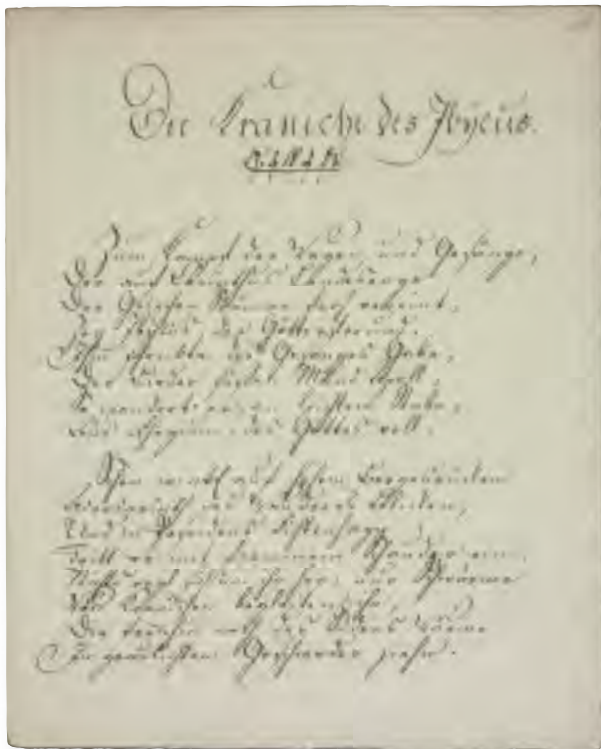 Die Kraniche des Ibycus.
Zum Kampf der Wagen und Gesänge,
Der auf Korinthus Landesenge
Der Griechen Stämme froh vereint,
Zog Ibycus, der Götterfreund.
Ihm schenkte des Gesanges Gabe,
Der Lieder süßen Mund Apoll,
So wandert er, an leichtem Stabe,
Aus Rhegium, des Gottes voll.
Schon winkt auf hohem Bergesrücken
Akrokorinth des Wandrers Blicken,
Und in Poseidons Fichtenhayn
Tritt er mit frommem Schauder ein.
Nichts regt sich um ihn her, nur Schwärme
Von Kranichen begleiten ihn,
Die fernhin nach des Südens Wärme
In graulichtem Geschwader ziehn.